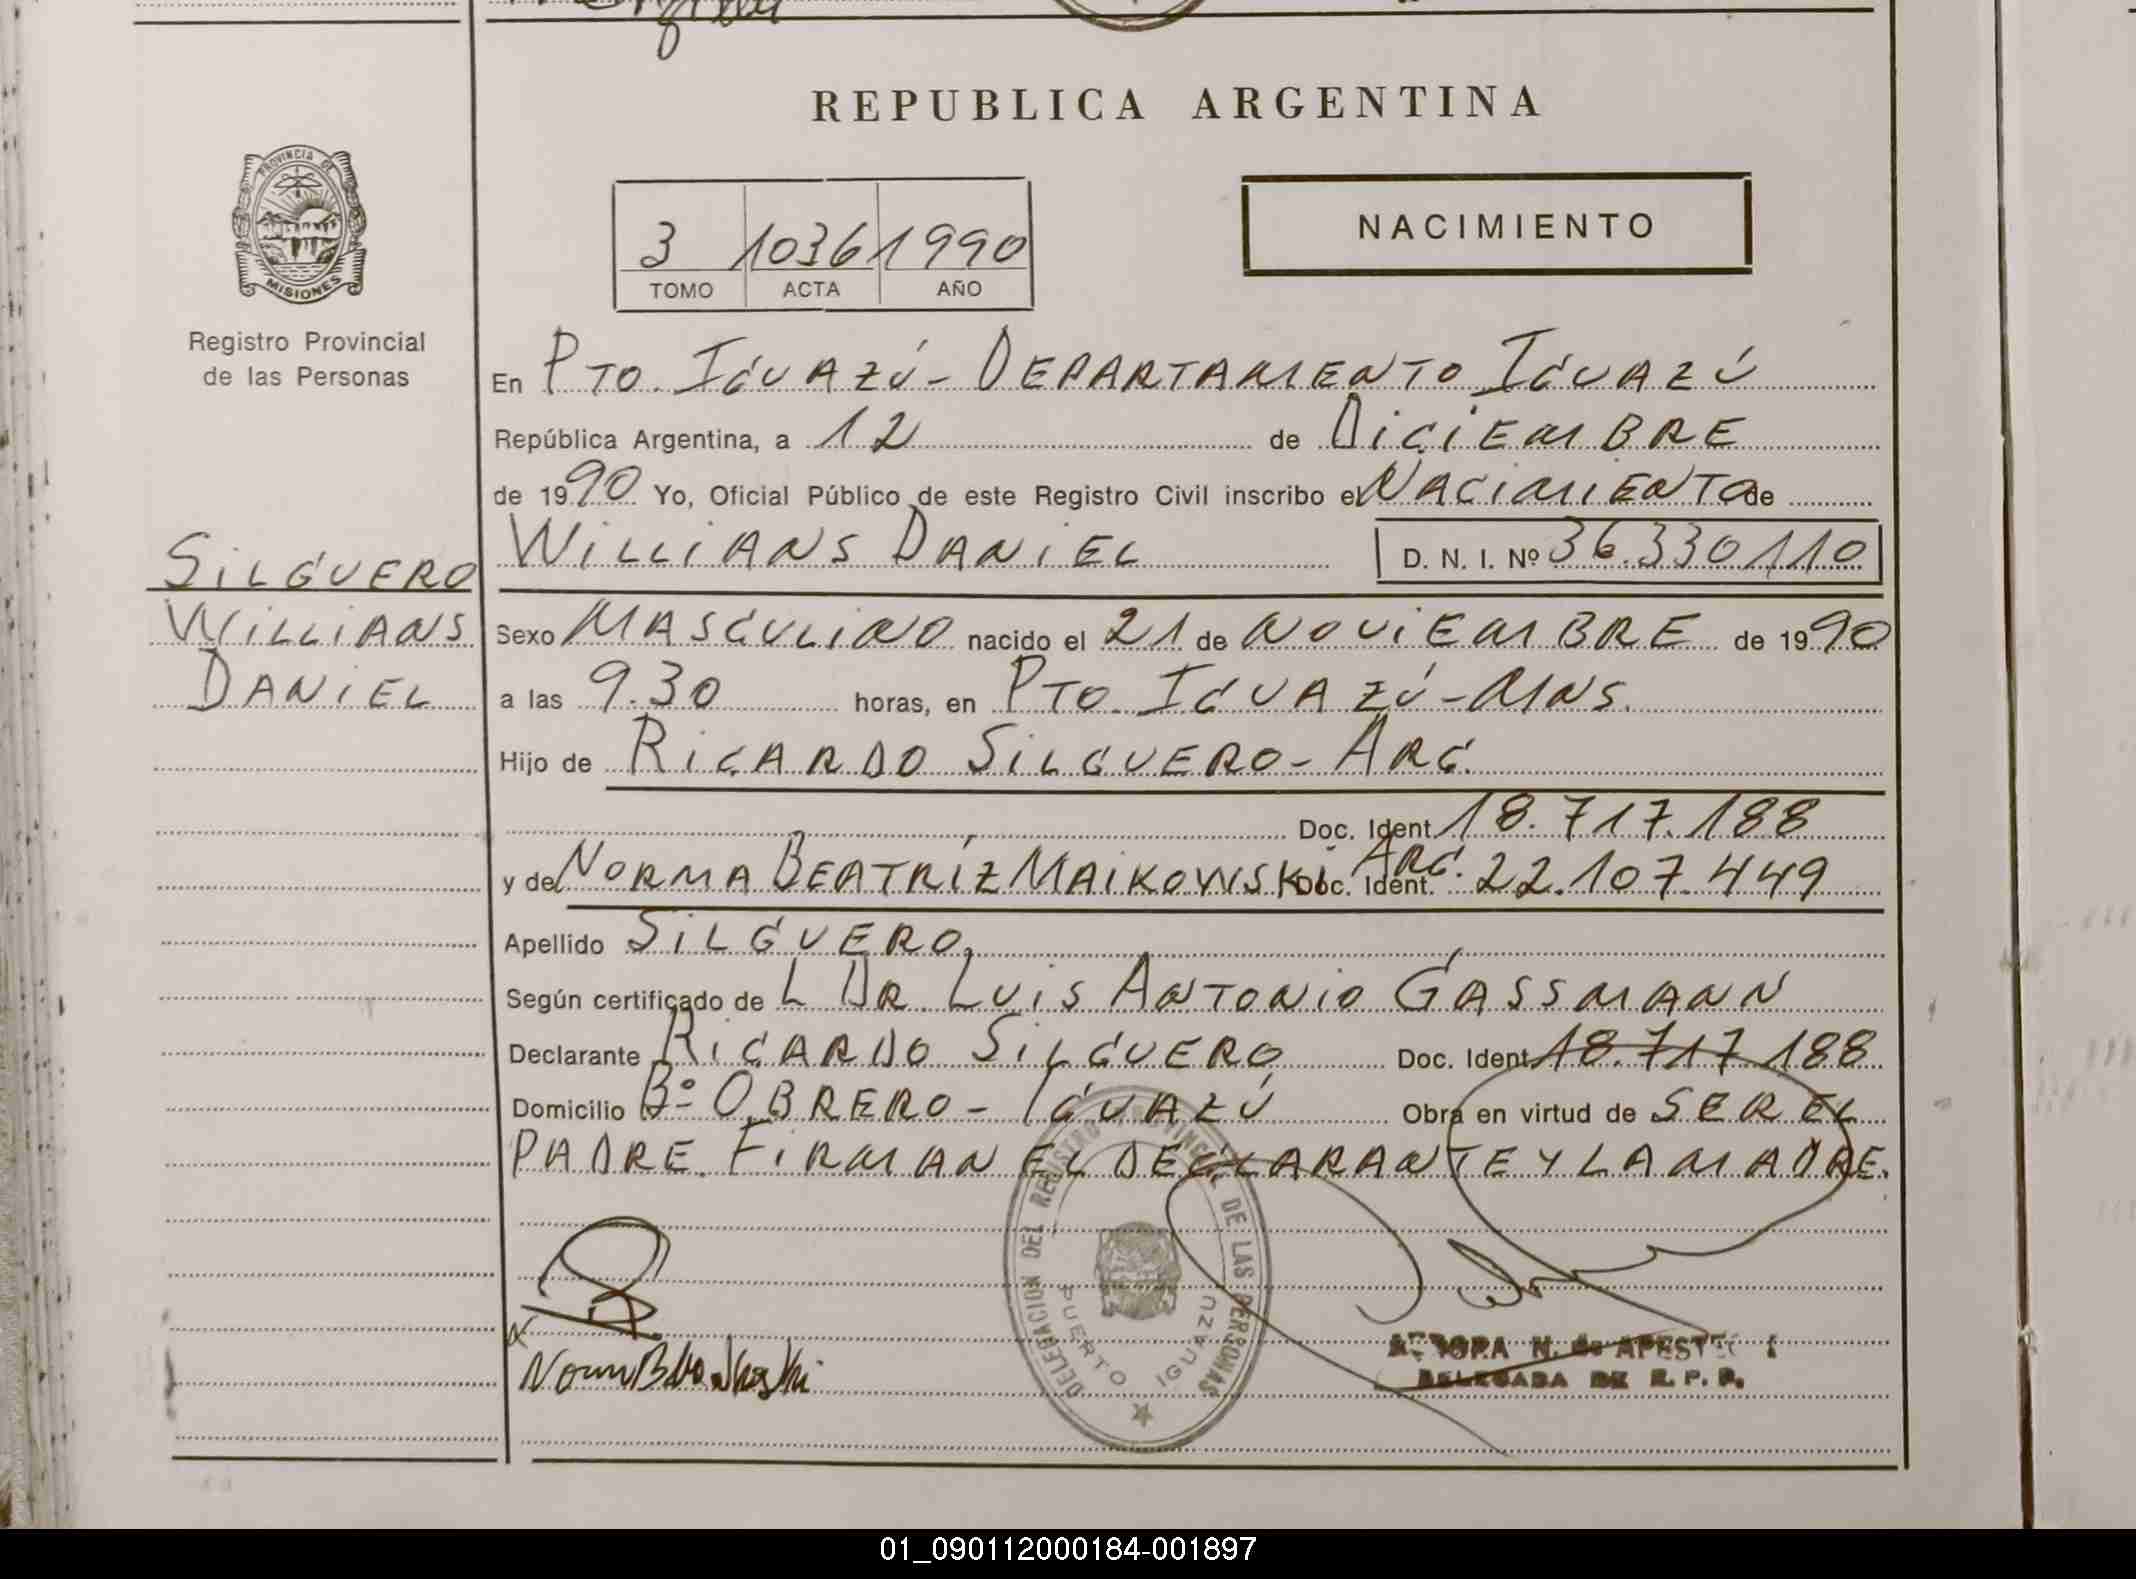 REPUBLICA ARGENTINA
PROVINCIA DE
MISIONES
Registro Provincial
de las Personas
NACIMIENTO
3 1036 1990
TOMO ACTA AÑO
En PTO. IGUAZÚ - DEPARTAMENTO IGUAZÚ
República Argentina, a 12 de DICIEMBRE
de 1990 Yo, Oficial Público de este Registro Civil inscribo el NACIMIENTO de
WILLIANS DANIEL D. N. I. Nº 36.330110
SILGUERO
WILLIANS
DANIEL
Sexo MASCULINO nacido el 21 de NOVIEMBRE de 1990
a las 9.30 horas, en PTO. IGUAZÚ - MNS.
Hijo de RICARDO SILGUERO - ARG.
Doc. Ident. 18.717.188
y de NORMA BEATRÍZ MAIKOWSKI ARG. Doc. Ident. 22.107.449
Apellido SILGUERO
Según certificado de L DR. LUIS ANTONIO GASSMANN
Declarante RICARDO SILGUERO Doc. Ident. 18.717.188
Domicilio Bº OBRERO - IGUAZÚ Obra en virtud de SER EL
PADRE. FIRMAN EL DECLARANTE Y LA MADRE.
DELEGACION DEL REGISTRO PROVINCIAL DE LAS PERSONAS
PUERTO IGUAZU
N. de
DELEGADA DE R. P. P.
01_090112000184-001897